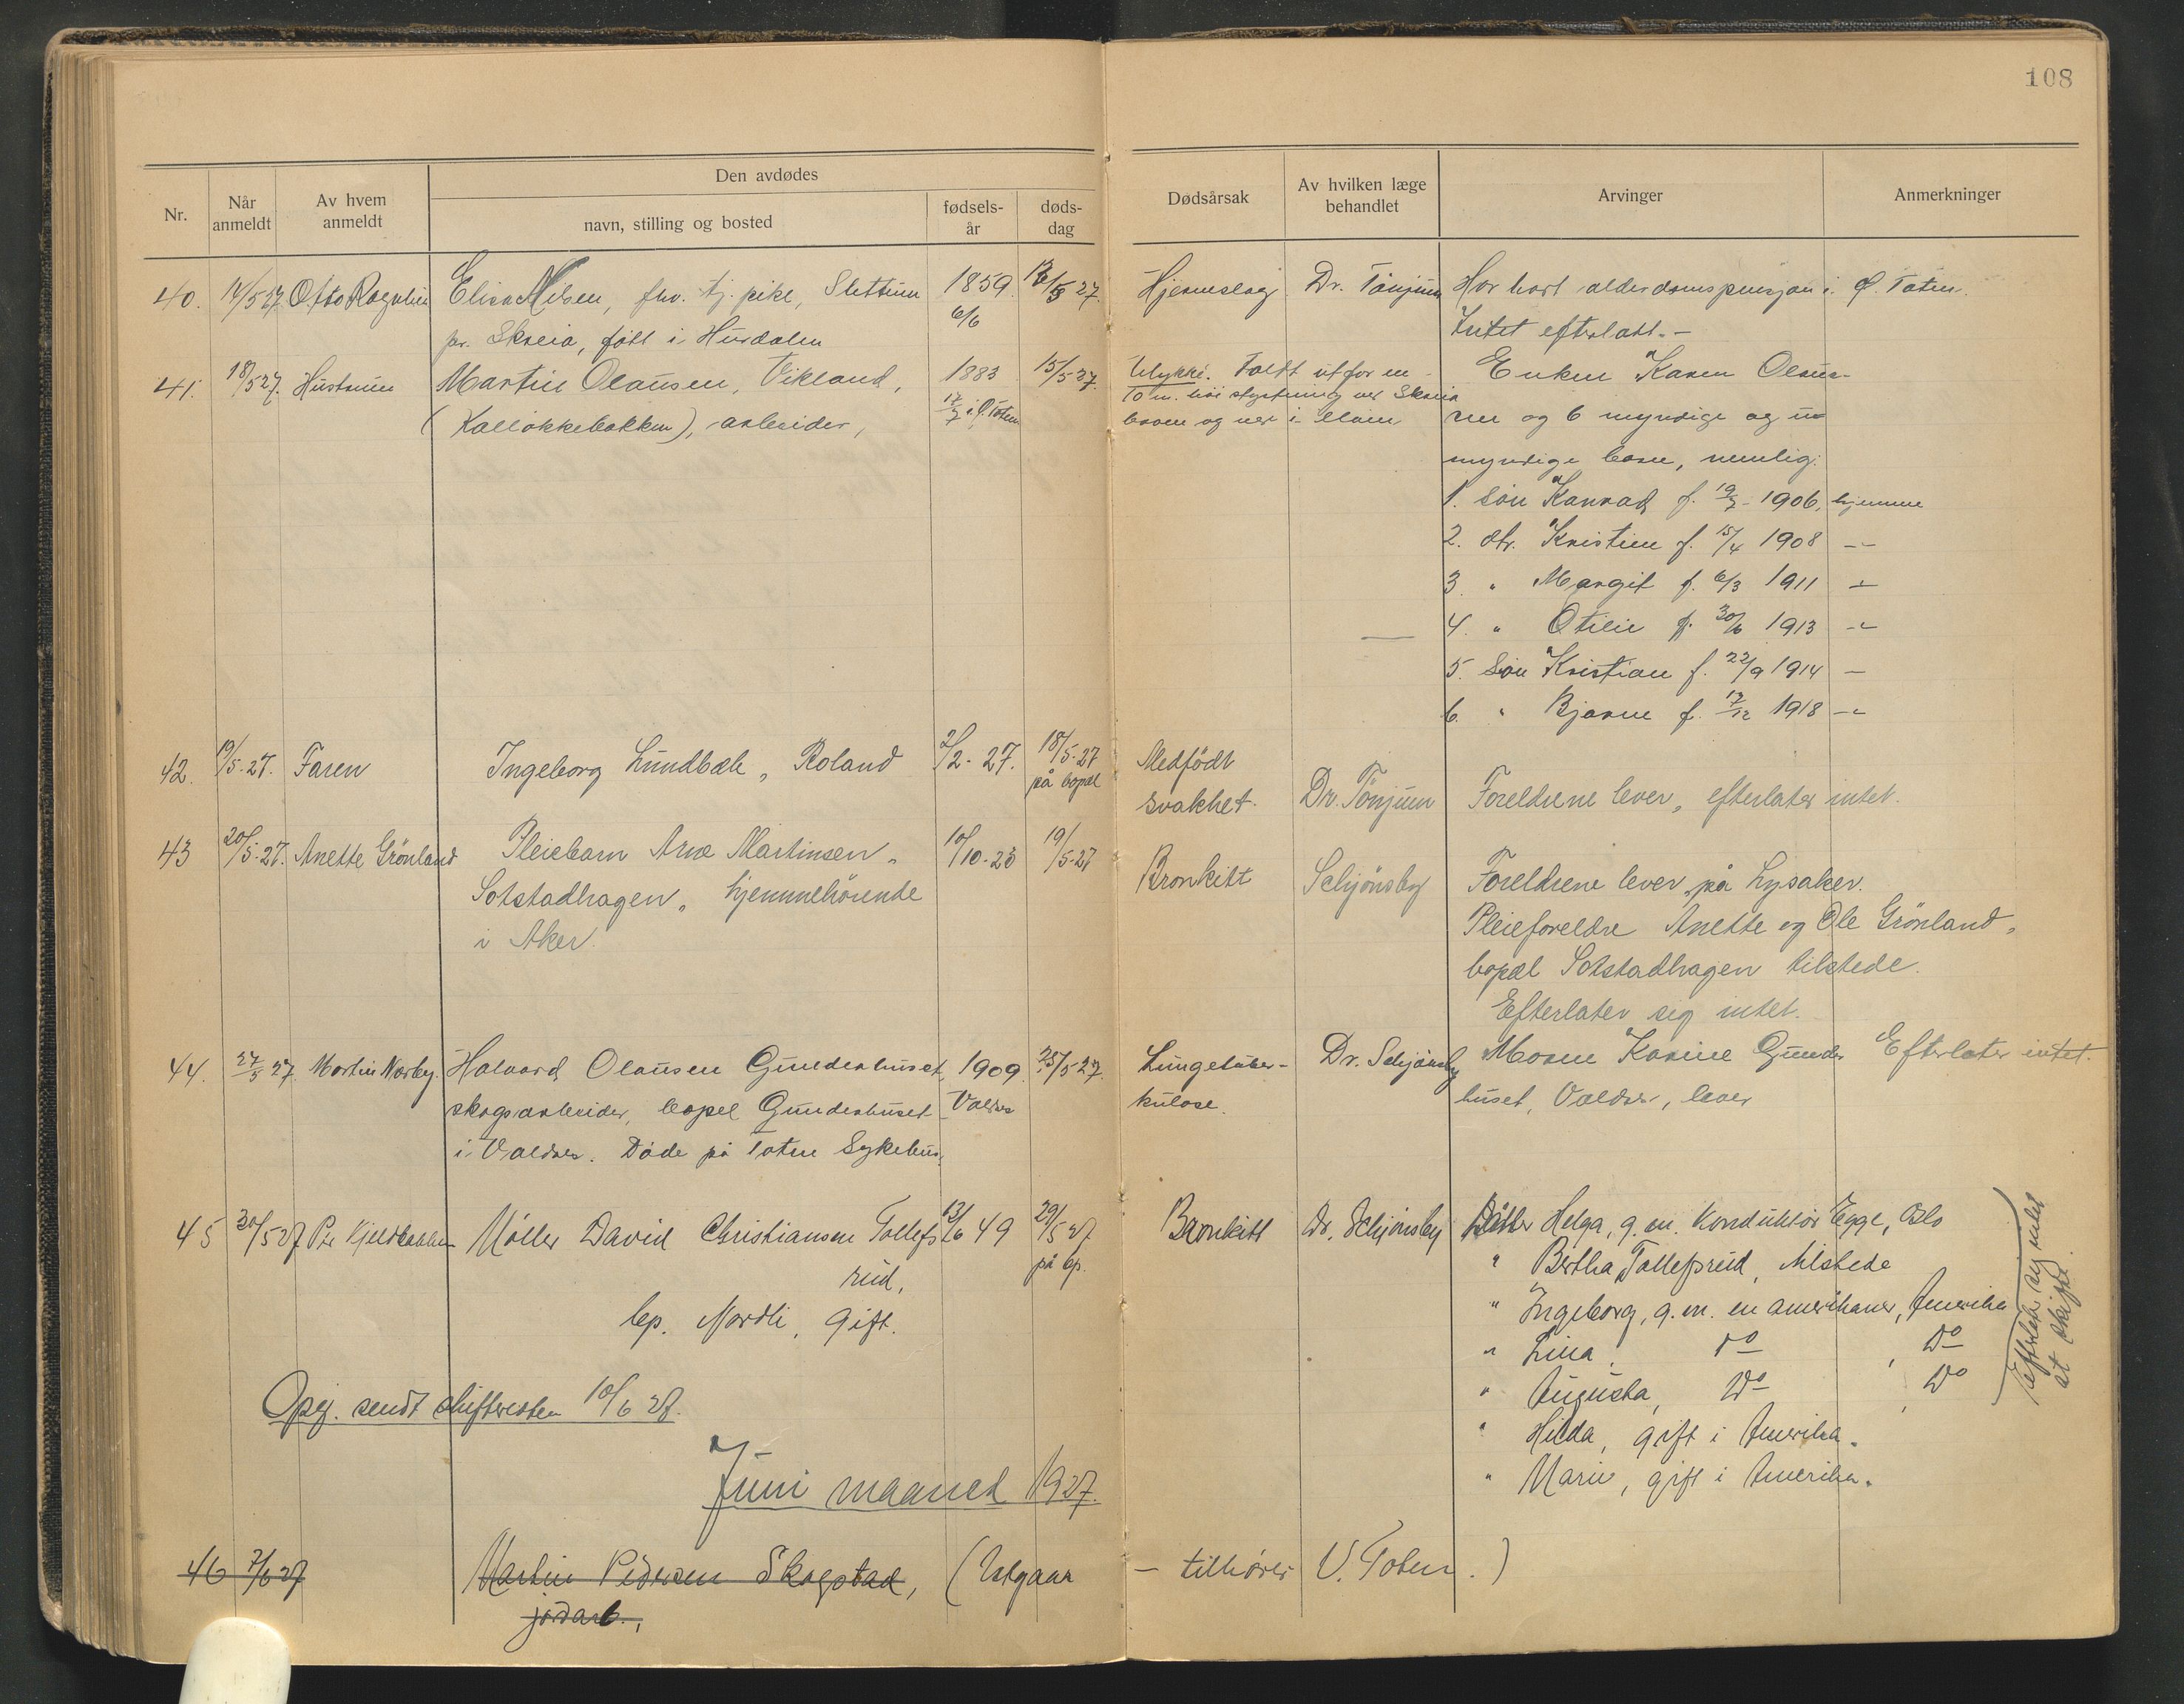 108
Nr.
Når anmeldt
Av hvem anmeldt
Den avdødes
navn, stilling og bosted
fødsels-år
døds-dag
Dødsårsak
Av hvilken læge behandlet
Arvinger
Anmerkninger
40. 14/5 27. Otto Rognlien Elise Nilsen, fhv. tj. pike, Slettum 1859. 12/5 27. Hjerneslag Dr. Tönjum Har hatt alderdomspensjon i Ø. Toten.
pr. Skreia, født i Hurdalen 6/6 Intet efterlatt. -
41. 18/5 27. Hustruen Martin Olausen, Vikland, 1883 15/5 27. Ulykke. Faldt utfor en Enken Karen Olau-
(Kalløkkebakken), arbeider, 17/7 i Ø. Toten 10 m. höi styrtning ved Skreia sen og 6 myndige og u-
banen og ned i elven myndige barn, nemlig:
1. sön Konrad f. 19/7 - 1906, hjemme
2. dtr. Kristine f. 15/4 1908 -"-
3. " Margit f. 6/3 1911 -"-
4. " Otilie f. 30/6 1913 -"-
5. Sön Kristian f. 22/9 1914 -
6. " Bjarne f. 17/12 1918 -"-
42. 19/5-27. Faren Ingeborg Lundbæk, Roland 2/2-27. 18/5-27 Medfödt
på bopæl svakhet. Dr. Tönjum Foreldrene lever, efterlater intet.
43 20/5-27. Anette Grönland Pleiebarn Arne Martinsen, 10/10-23 19/5-27 Bronkitt Schjönsby Foreldrene lever, på Lysaker.
Sotstadhagen, hjemmehörende Pleieforeldre Anette og Ole Grönland,
i Aker. bopæl Sotstadhagen tilstede.
Efterlater sig intet.
44. 27/5 27. Martin Narby. Halvard Olausen Gunderhuset, 1909. 25/5 27. Lungetuber- Dr. Schjönsby Moren Karine Gunder Efterlater intet.
skogsarbeider, bopel Gunderhuset Valdres kulose. huset, Valdres, lever
i Valdres. Döde på Toten Sykehus.
45 30/5 27 Per Kjeldbakken Möller David Christiansen Tollefs 13/6 49 29/5 27 Bronkitt Dr. Schjönsby Datter Helga, g.m. Konduktör Egge, Oslo
rud, på bp. " Bertha Tollefsrud, tilstede
bp. Nordli, gift. " Ingeborg, g.m. en amerikaner, Amerika
" Lina, Do , Do
" Augusta, Do , Do
" Hilda, gift i Amerika.
" Marie, gift i Amerika.
Efterlater sig intet
at skifte.
Opg. sendt skifteretten 10/6 27.
Juni maaned 1927.
46 7/6 27 Martin Pedersen Skogstad, (Utgaar - tilhörer V. Toten.)
jordarb.,